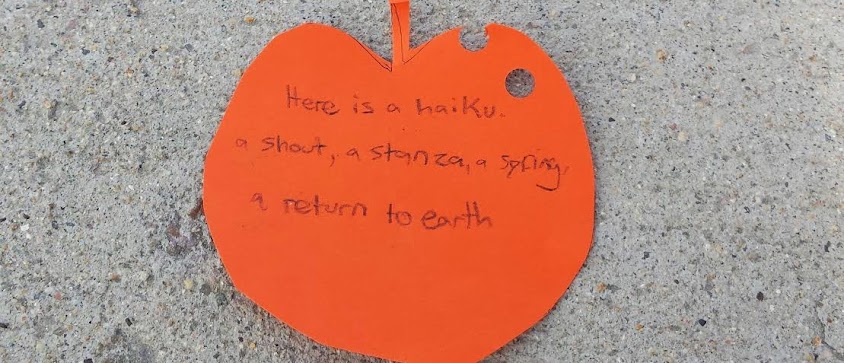 Here is a haiku.
a shout, a stanza, a spring,
a return to earth